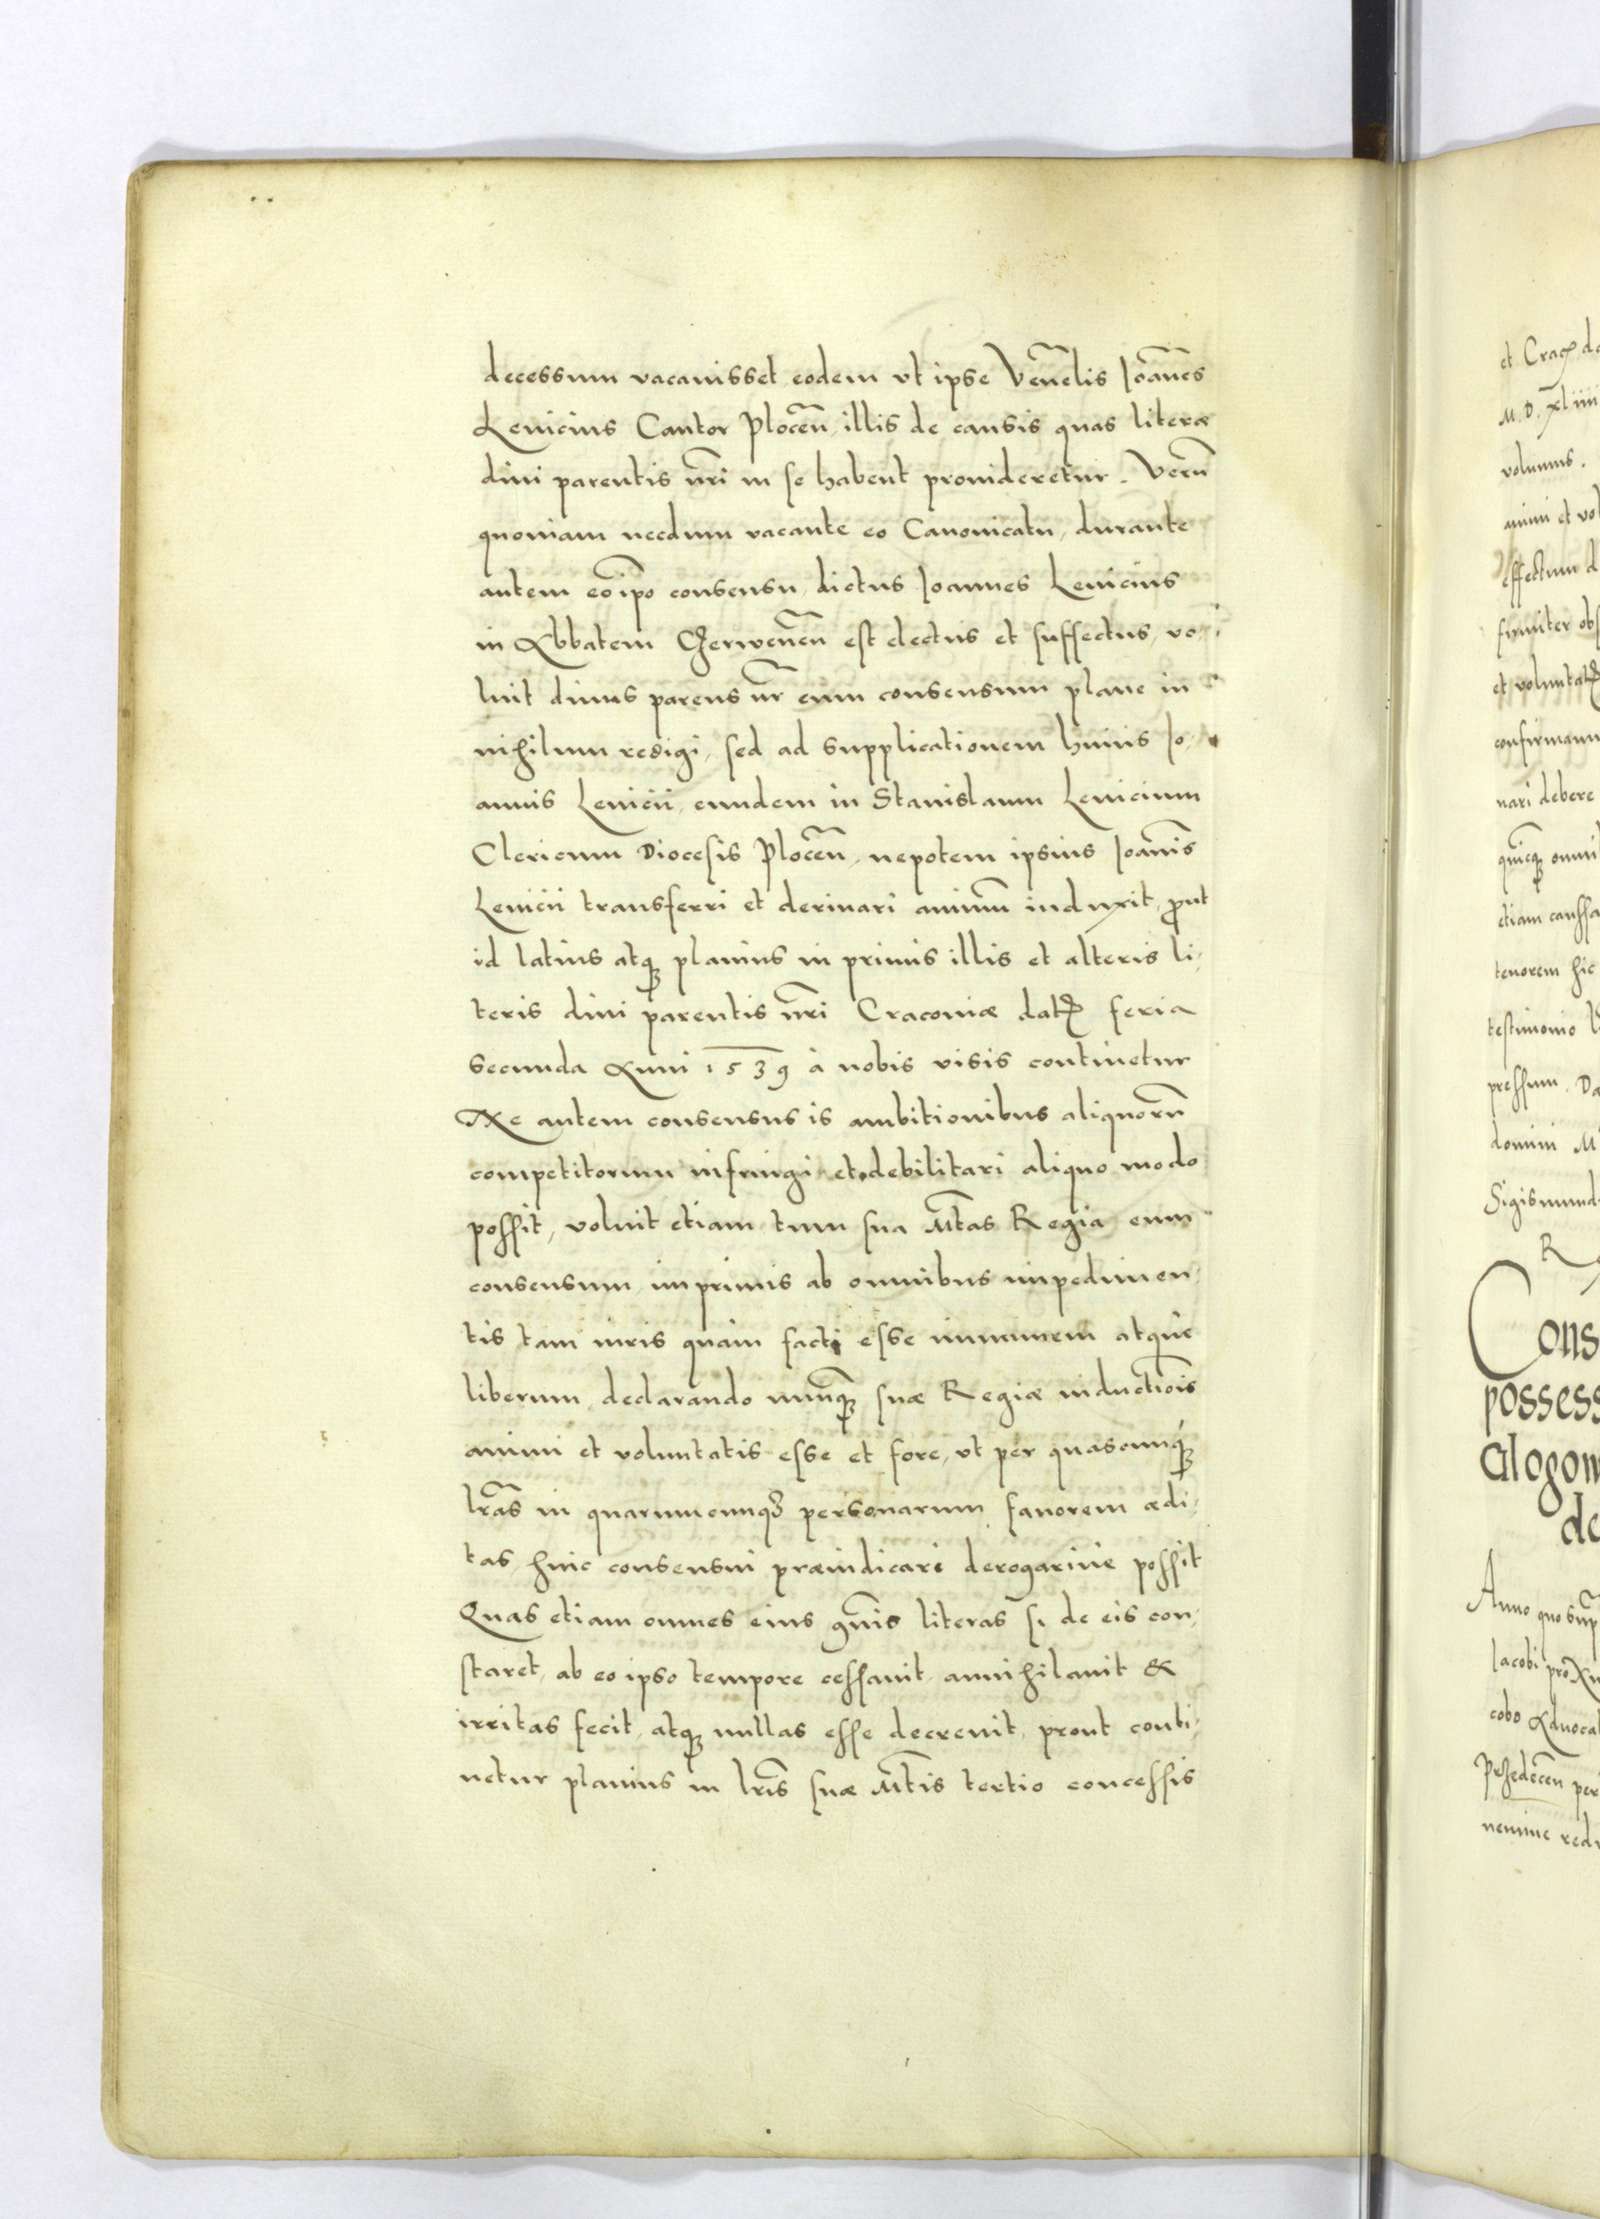 decessum vacauisset, eodem vt ipse Venẽlis Ioãnes
Leuicius Cantor Plocẽn, illis de causis quas literæ
diui parentis nr̃i in se habent prouideretur. Verũ
quoniam necdum vacante eo Canonicatu, durante
autem eoip̃o consensu, dictus Ioannes Leuicius
in Abbatem Czerwenẽn est electus et suffectus, vo-
luit diuus parens nr̃ eum consensum plane in
nihilum redigi, sed ad supplicationem huius Io-
annis Leuicii, eundem in Stanislaum Leuicium
Clericum Diocesis Plocẽn, nepotem ipsius Ioãnis
Leuicii transferri et deriuari animũ induxit, prout
id latius atqȝ planius in primis illis et alteris li-
teris diui parentis nr̃i Cracouiæ datꝭ feria
secunda Anni 1539 à nobis visis continetur
Ne autem consensus is ambitionibus aliquorũ
competitorum infringi et debilitari aliquo modo
possit, voluit etiam tum sua Mt̃as Regia eum
consensum imprimis ab omnibus impedimen-
tis tam iuris quàm facti esse immunem atque
liberum, declarando nunqȝ suæ Regiæ inductiõis
animi et voluntatis esse et fore, vt per quascunqȝ
lr̃as in quarumcunqȝ personarum fauorem ædi-
tas, huic consensui præiudicari derogariue possit
Quas etiam omnes eius gñis literas si de eis con-
staret, ab eo ipso tempore cessauit annihilauit &
irritas fecit, atqȝ nullas esse decreuit, prout conti-
netur planius in lr̃is suæ Mt̃is tertio concessis
et Cracꝭ
M.D.xliiii
volumus.
animi et
effectum
firmiter
et voluntatꝭ
nari debere
etiam
tenorem hic
testimonio
pressum.
domini
Cons
possess
Glogow
de
Anno quo
Iacobi
cobo Aduocat
Przedecẽn per
nemine